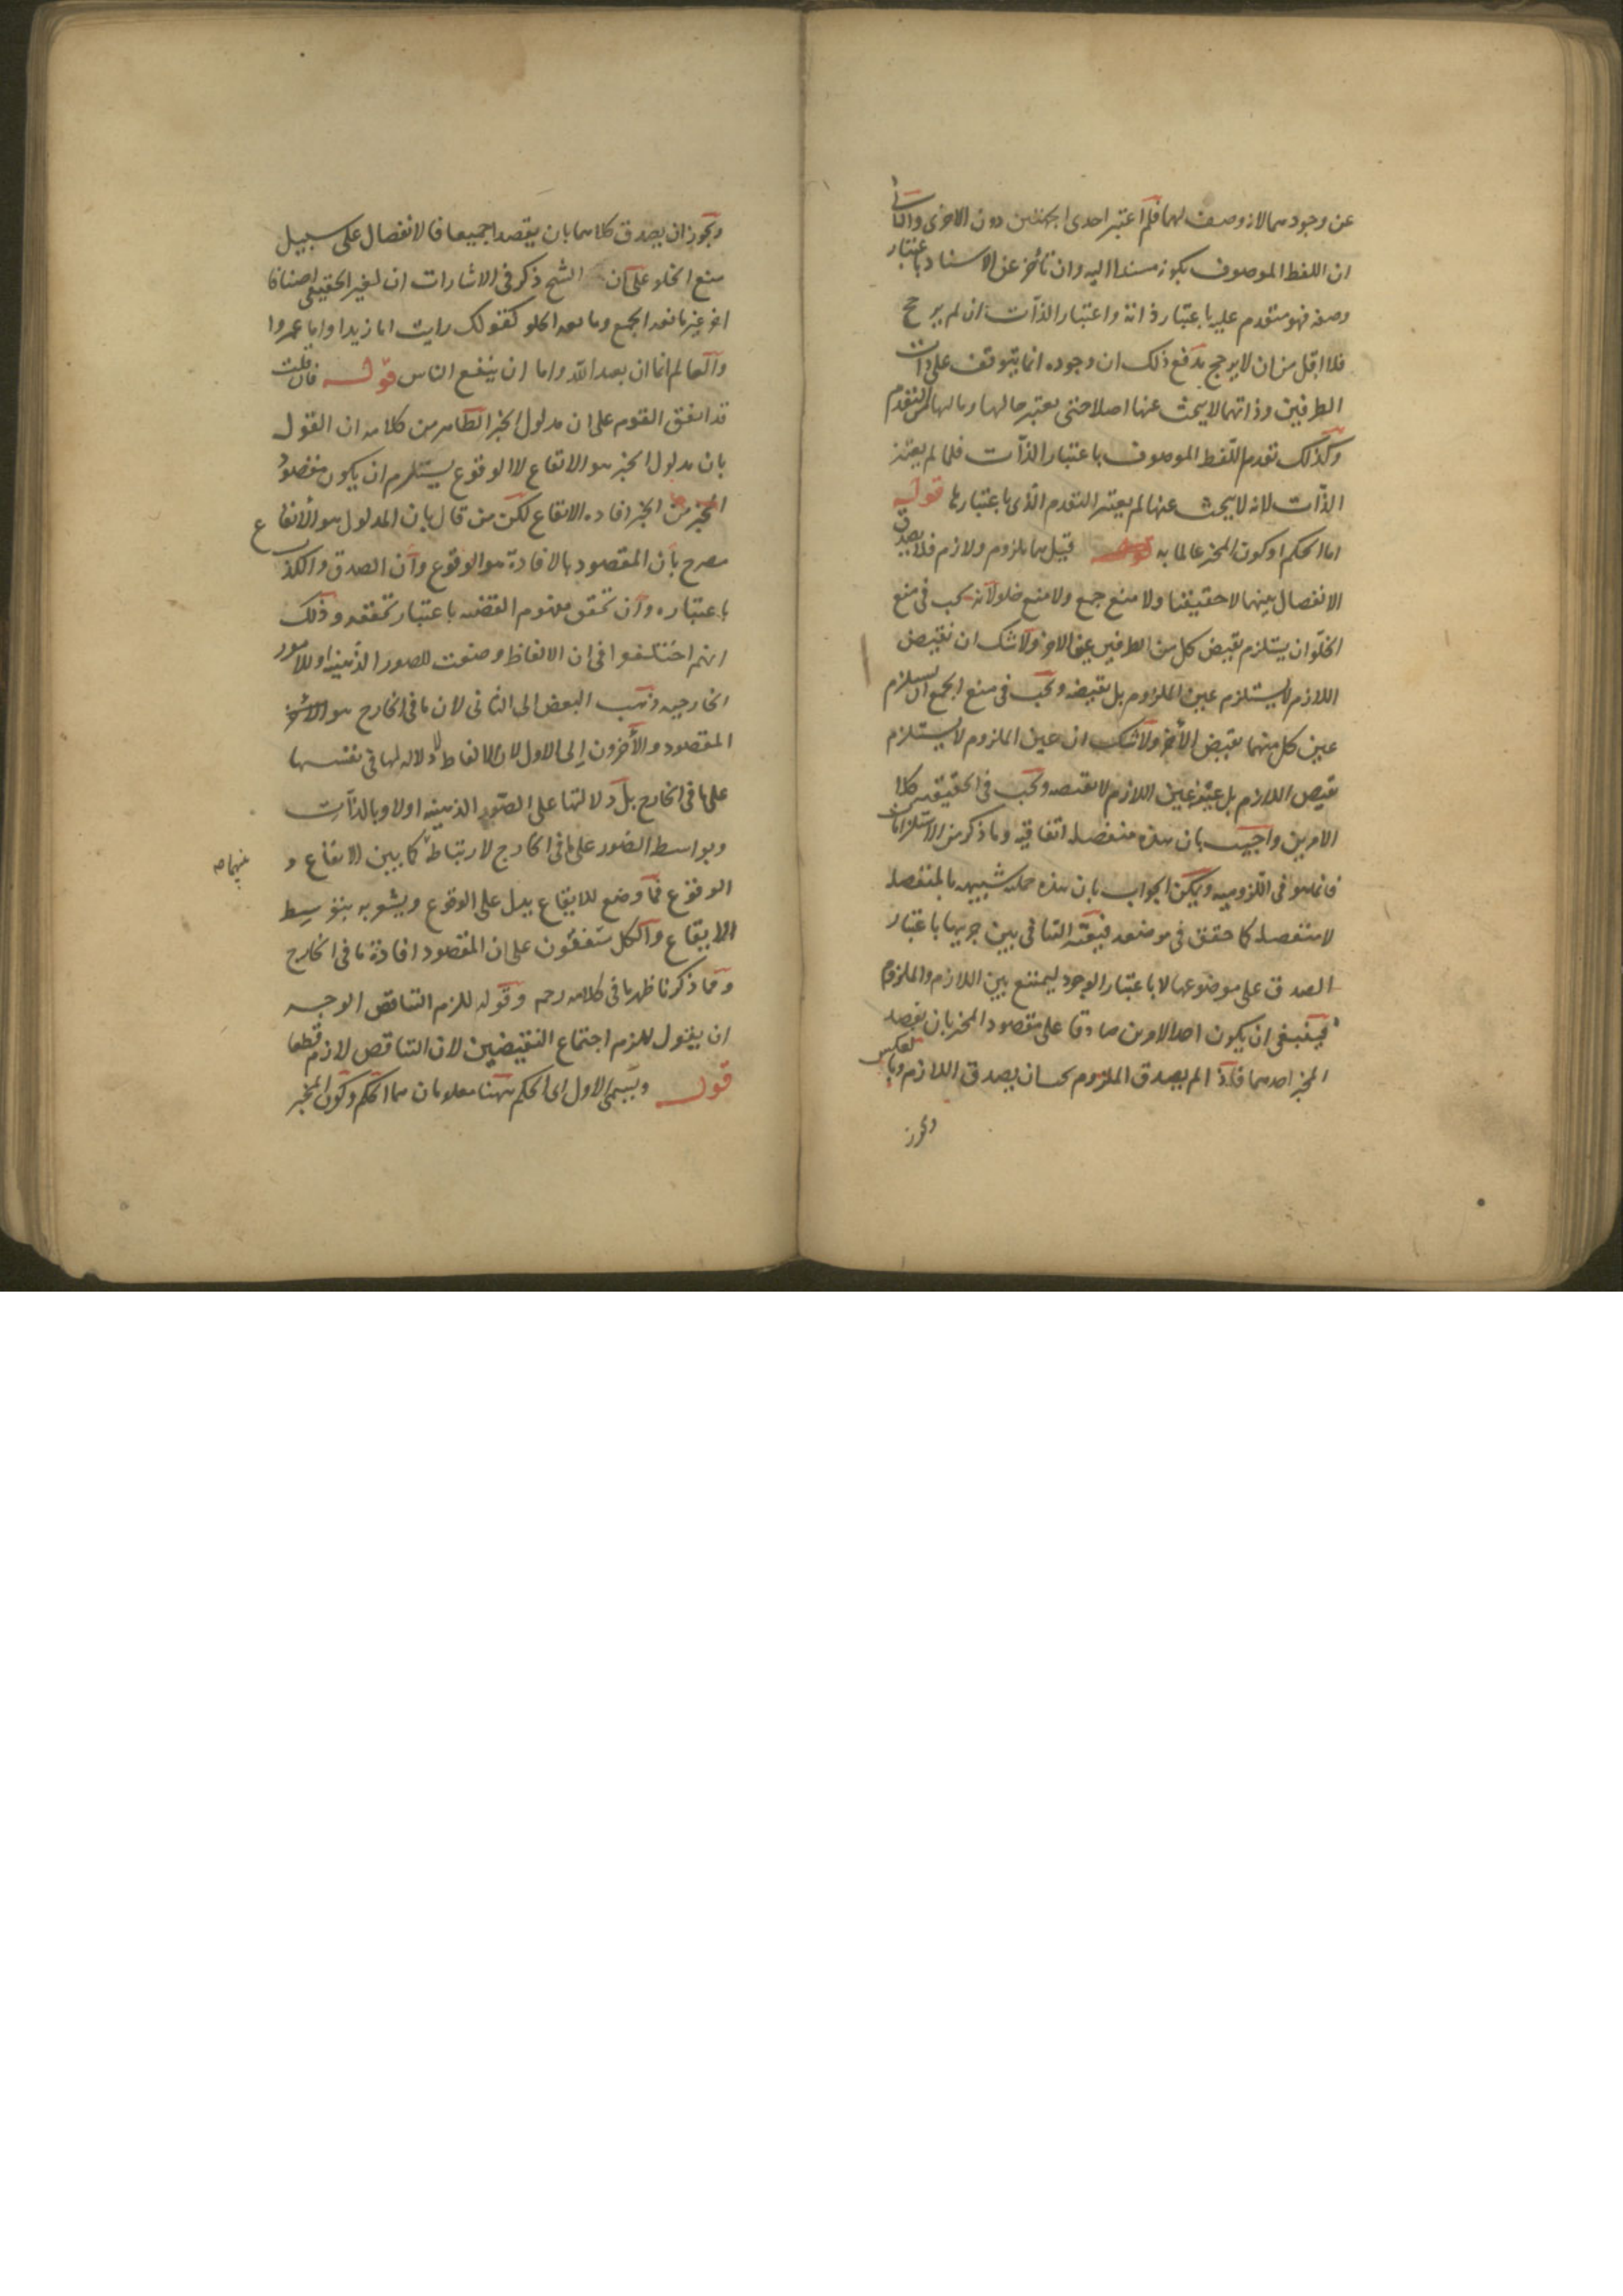 عن وجودهما لازوصف لهما فلم اعتبر احدى الجهتين دون الاخرى والثانى
ان اللفظ الموصوف بكونه مسندا اليه وان تأخر عن الاسناد باعتبار
وصفه فهو متقدم عليه باعتبار ذاته واعتبار الذات ان لم يرجح
فلا اقل من ان لا يرجح يدفع ذلك ان وجوده انما يتوقف على ذات
الطرفين وذاتهما لا يبحث عنها اصلا حتى يعتبر حالها ومالها من التقدم
وكذلك تقدم اللفظ الموصوف باعتبار الذات فلما لم يعتبر
الذات لانه لا يبحث عنها لم يعتبر التقدم الذى باعتبارها قوله
اما الحكم او كون المخبر عالما به قيل هما ملزوم ولازم فلا يصدق
الانفصال بينهما لا حقيقيا ولا منع جمع ولا منع خلو لانه يجب فى منع
الخلو ان يستلزم نقيض كل من الطرفين عين الاخر ولا شك ان نقيض
اللازم لا يستلزم عين الملزوم بل نقيضه ويجب فى منع الجمع ان يستلزم
عين كل منهما نقيض الاخر ولا شك ان عين الملزوم لا يستلزم
نقيض اللازم بل عينه عين اللازم لا نقيضه ويجب فى الحقيقية كلا
الامرين واجيب بان هذه منفصلة اتفاقية وما ذكر من الاستلزامات
فانما هو فى اللزومية ويمكن الجواب بان هذه حملية شبيهة بالمنفصلة
لا منفصلة كما حقق فى موضعه فيعتبر التنافى بين جزئيها باعتبار
الصدق على موضوعها لا باعتبار الوجود ليمتنع بين اللازم والملزوم
فينبغى ان يكون احد الامرين صادقا على مقصود المخبر بان يقصد
المخبر احدهما فاذا لم يصدق الملزوم يجب ان يصدق اللازم وبالعكس
ويجوز
ويجوز ان يصدق كلاهما بان يقصدا جميعا فالانفصال على سبيل
منع الخلو على ان الشيخ ذكر فى الاشارات ان لغير الحقيقى اصنافا
اخر غير مانعة الجمع ومانعة الخلو كقولك رايت اما زيدا واما عمروا
والعالم اما ان يعبد الله واما ان ينفع الناس قوله فان قلت
قد اتفق القوم على ان مدلول الخبر الظاهر من كلامه ان القول
بان مدلول الخبر هو الايقاع لا الوقوع يستلزم ان يكون مقصود
المخبر من الخبر افادة الايقاع لكن من قال بان المدلول هو الايقاع
مصرح بان المقصود بالافادة هو الوقوع وان الصدق والكذب
باعتباره وان تحقق مفهوم القضية باعتبار تحققه وذلك
انهم اختلفوا فى ان الالفاظ وضعت للصور الذهنية او للامور
الخارجية ذهب البعض الى الثانى لان ما فى الخارج هو
المقصود والاخرون الى الاول لان الالفاظ لا دلالة لها فى نفسها
على ما فى الخارج بل دلالتها على الصور الذهنية اولا وبالذات
وبواسطة الصور على ما فى الخارج لارتباط كما بين الايقاع و
منهما صح
الوقوع فما وضع للايقاع يدل على الوقوع ويشعر به بتوسيط
الايقاع والكل متفقون على ان المقصود افادة ما فى الخارج
ومما ذكرنا ظهر ما فى كلامه رحمه وقوله للزم التناقض الوجه
ان يقول للزم اجتماع النقيضين لان التناقض لازم قطعا
قوله ويسمى الاول اى الحكم ههنا معلومان هما الحكم وكون المخبر